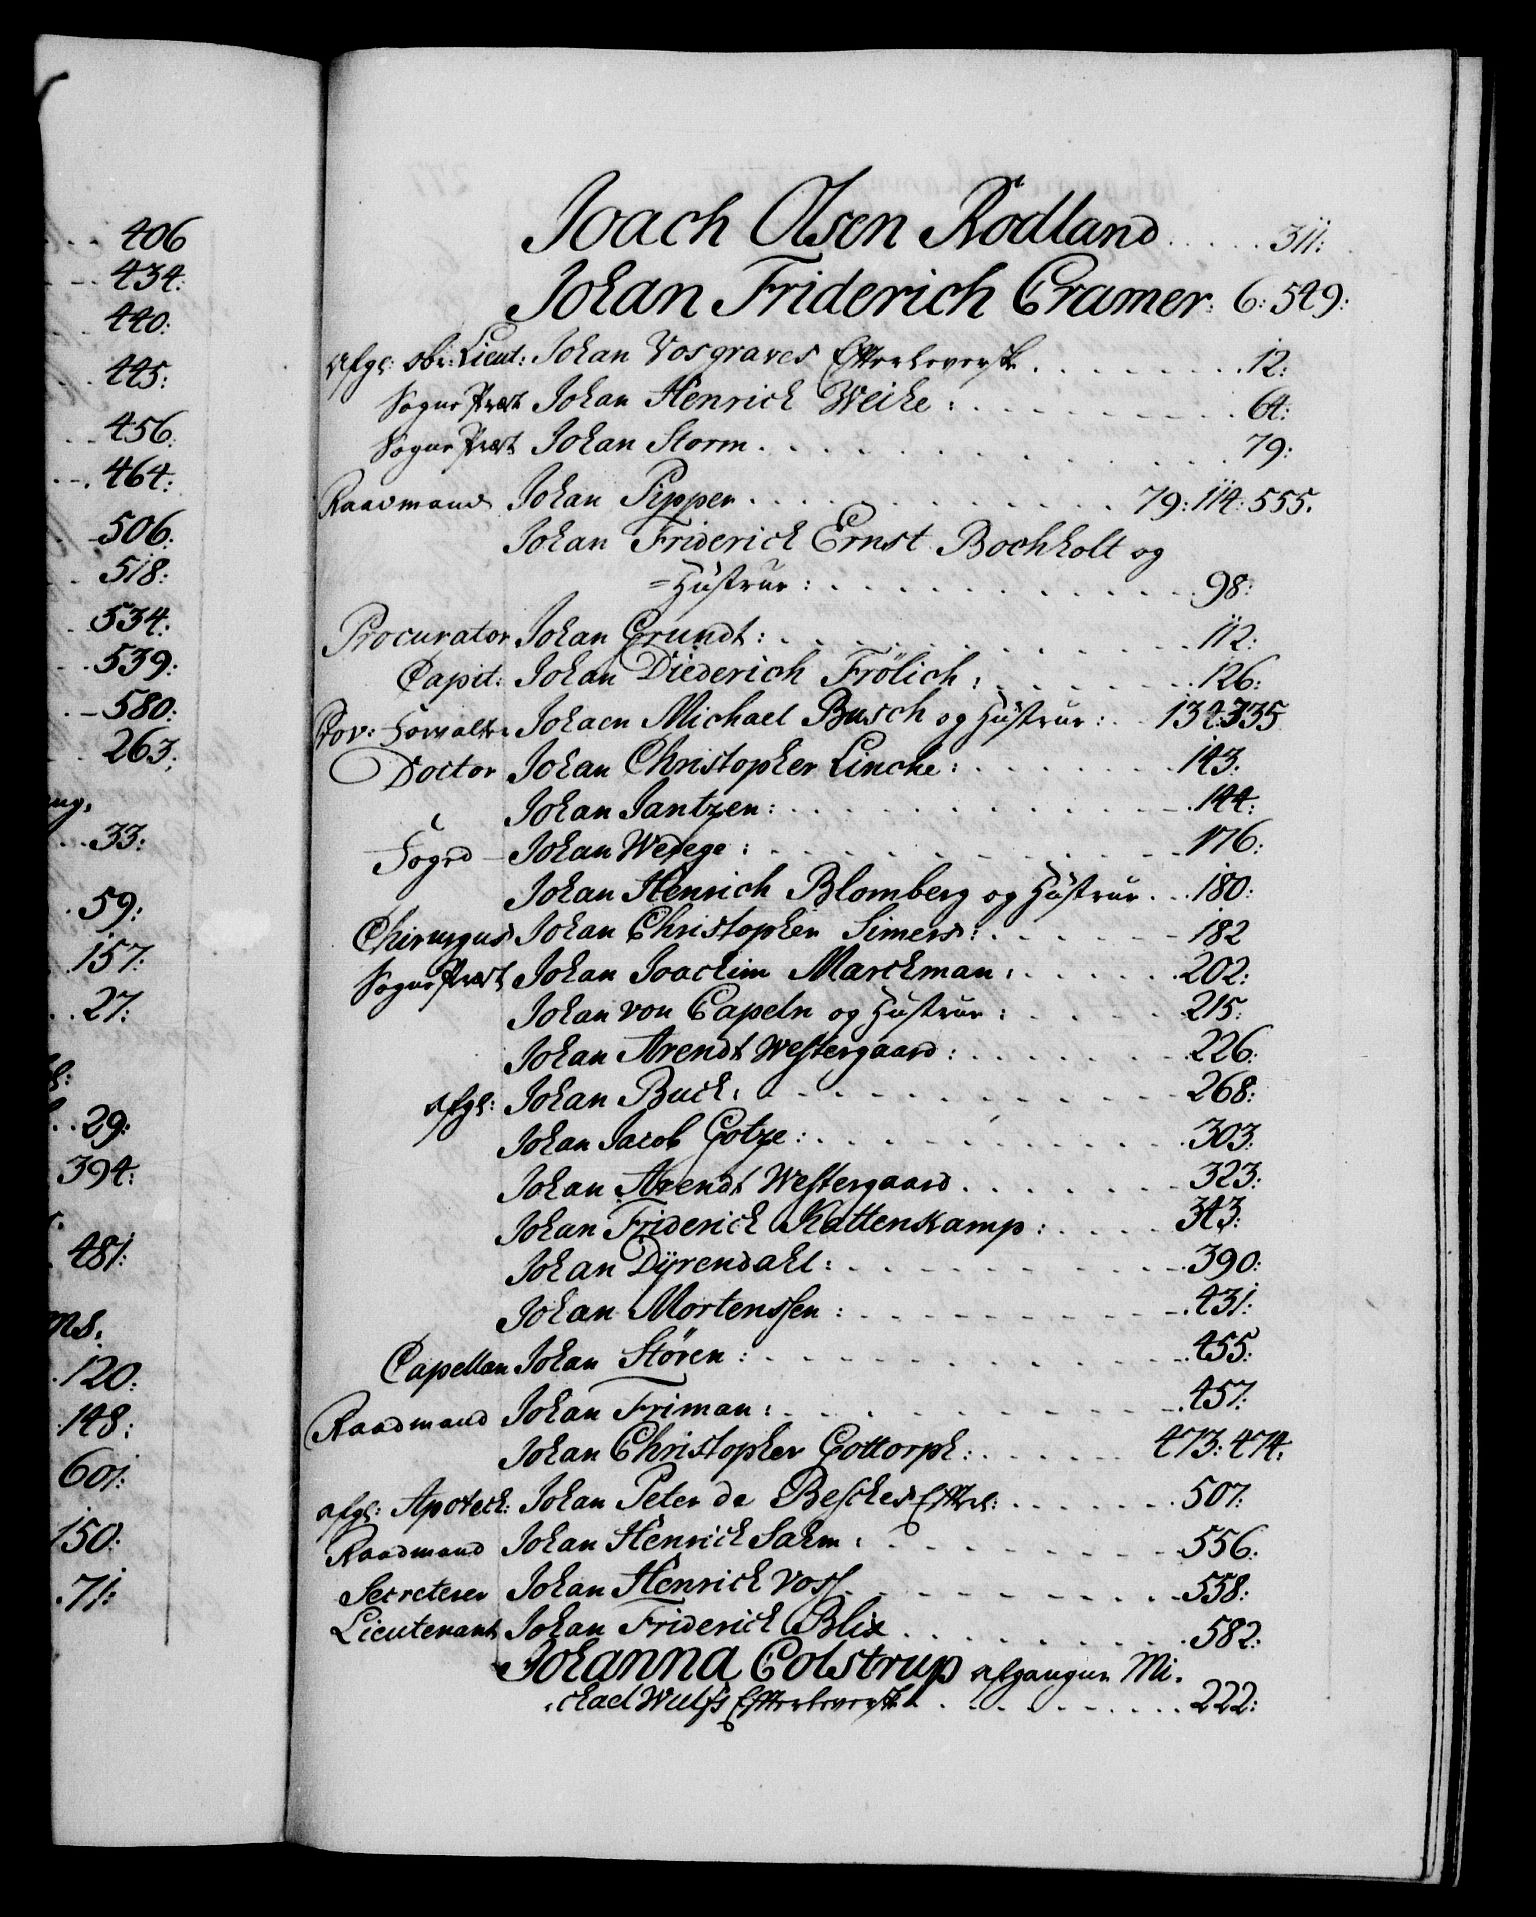 406
434:
440:
445:
456:
464:
506:
518:
534:
539:
580:
263:
ng.
33:
59:
157:
27:
29:
394:
481:
ns.
120:
148:
601:
150:
71:
Joach Olsen Rødland . . . . . 311:
Johan Friderich Cramer: 6: 549:
afgl: obr: Lieut: Johan Vosgraves Efterleversk . . . . . 12:
Sogne Præst Johan Henrich Weihe: . . . . . 64:
Sogne Præst Johan Storm . . . . . 79:
Raadmand Johan Pipper . . . . . 79: 114: 555.
Johan Friderich Ernst Bochholt og
= Hustrue: . . . . . 98:
Procurator Johan Grundt: . . . . . 112:
Capit: Johan Diederich Frölich: . . . . . 126:
Prov: Forvalter Johan Michael Busch og Hustrue: . . 134: 335
Doctor Johan Christopher Lincke: . . . . . 143:
Johan Jantzen: . . . . . 144:
Foged Johan Wedege: . . . . . 176:
Johan Henrich Blomberg og Hustrue . . . 180:
Chirurgus Johan Christopher Simers: . . . . . 182
Sogne Præst Johan Joachim Marckman: . . . . . 202:
Johan von Capeln og Hustrue: . . . . . 215:
Johan Arendt Westergaard: . . . . . 226:
afgl: Johan Buck: . . . . . 268:
Johan Jacob Gotze: . . . . . 303:
Johan Arendt Westergaard . . . . . 323:
Johan Friderich Kattenskamp: . . . . . 343:
Johan Dÿrendahl: . . . . . 390:
Johan Mortenssen: . . . . . 431:
Capellan Johan Støren: . . . . . 455:
Raadmand Johan Friman: . . . . . 457:
Johan Christopher Gottorph: . . . . . 473: 474.
afgl: Apotech: Johan Peter de Besches Efterl: . . . . . 507:
Raadmand Johan Henrich Sahm: . . . . . 556:
Secreterer Johan Henrich Voss . . . . . 558:
Lieutenant Johan Friderich Blix . . . . . 582:
Johanna Colstrup afgangne Mi.
chael Wulfs Efterleversk . . . . . 222: